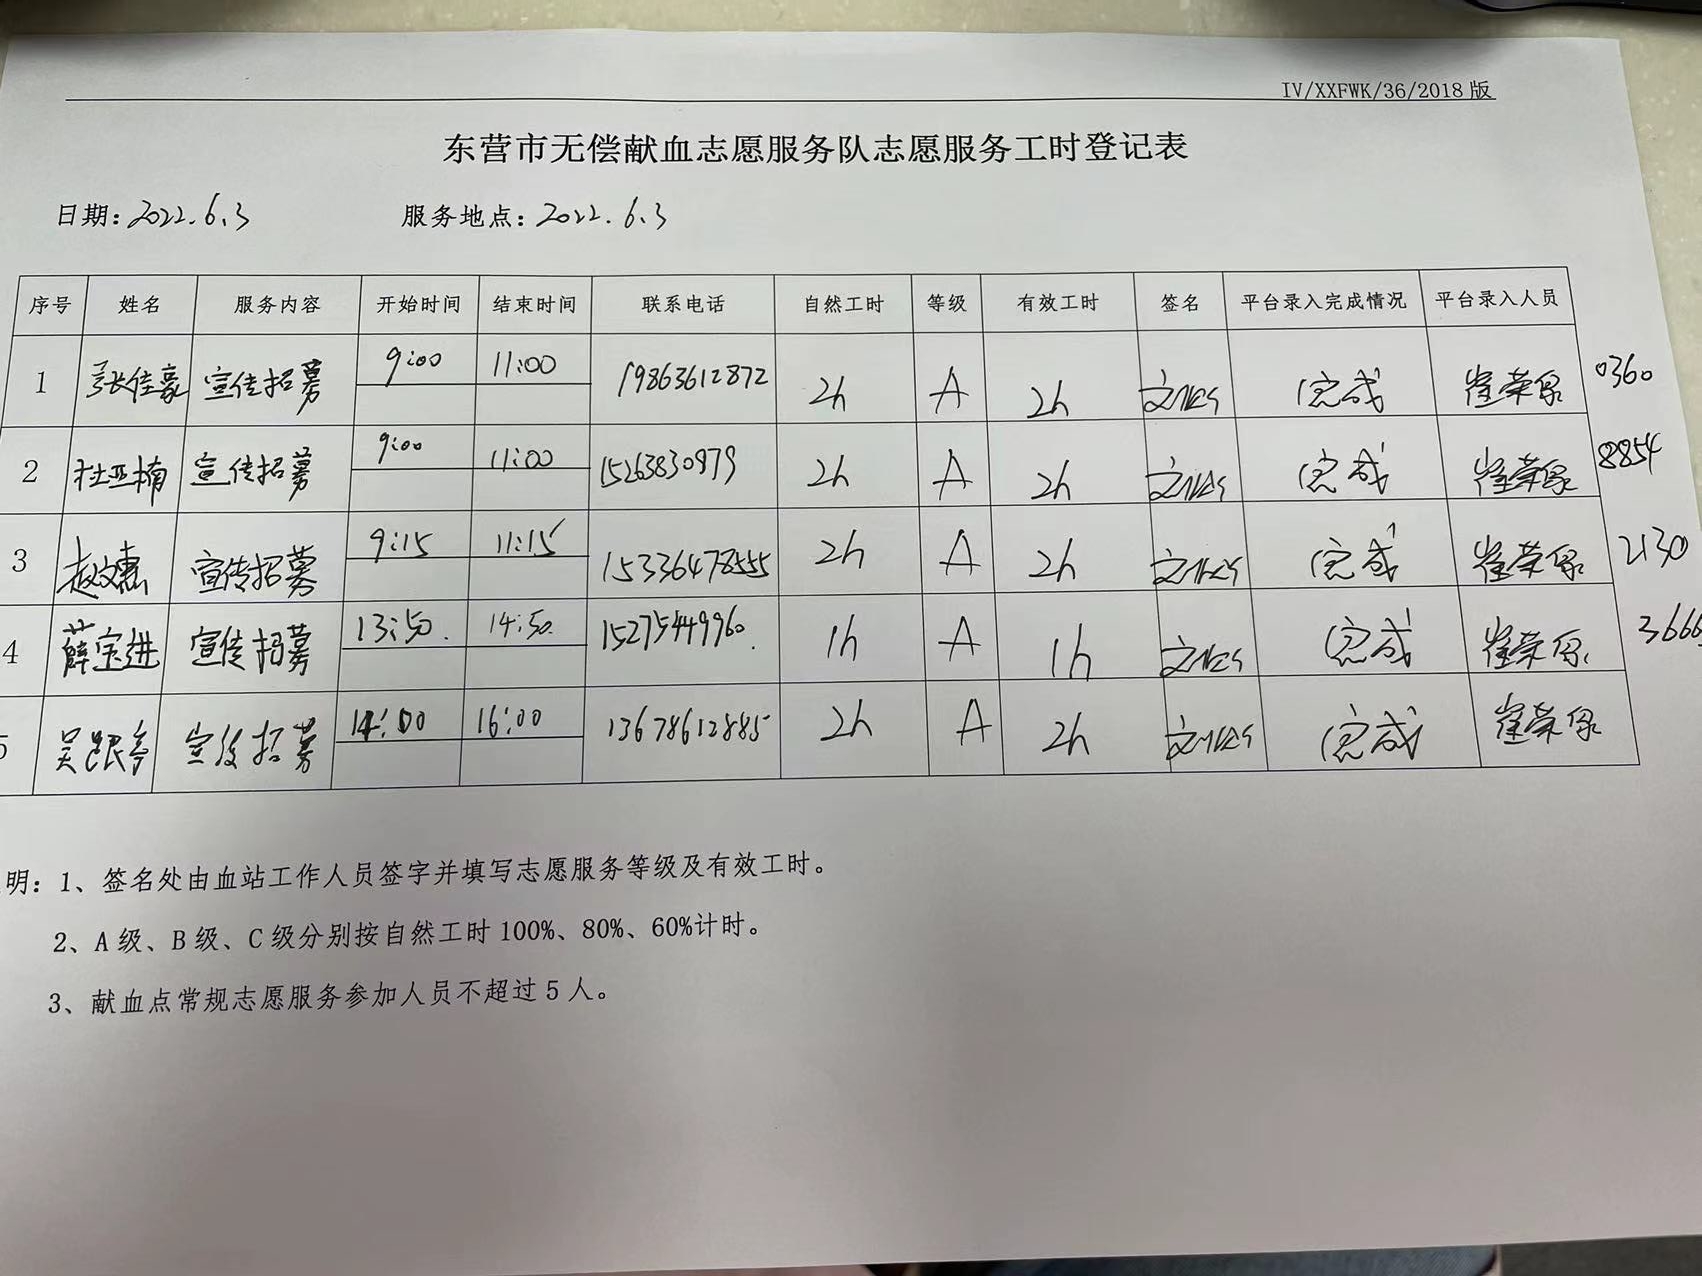 IV/XXFWK/36/2018版
东营市无偿献血志愿服务队志愿服务工时登记表
日期：2022.6.3 服务地点：2022.6.3
序号 姓名 服务内容 开始时间 结束时间 联系电话 自然工时 等级 有效工时 签名 平台录入完成情况 平台录入人员
1 张佳豪 宣传招募 9:00 11:00 19863612872 2h A 2h 完成 崔荣 0360
2 杜亚楠 宣传招募 9:00 11:00 15263830979 2h A 2h 完成 崔荣 8854
3 赵文惠 宣传招募 9:15 11:15 15336478555 2h A 2h 完成 崔荣 2130
4 薛宝进 宣传招募 13:50. 14:50. 15275449960. 1h A 1h 完成 崔荣 3666
5 吴 宣传招募 14:00 16:00 13678612885 2h A 2h 完成 崔荣
明：1、签名处由血站工作人员签字并填写志愿服务等级及有效工时。
2、A级、B级、C级分别按自然工时100%、80%、60%计时。
3、献血点常规志愿服务参加人员不超过5人。